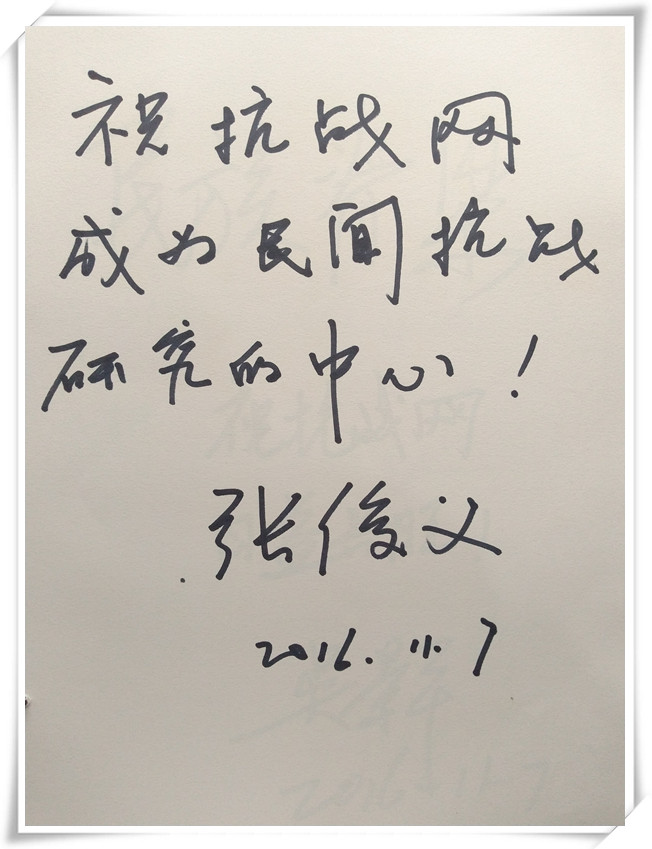 祝抗战网
成为民间抗战
研究的中心!
张俊义
2016.11.7